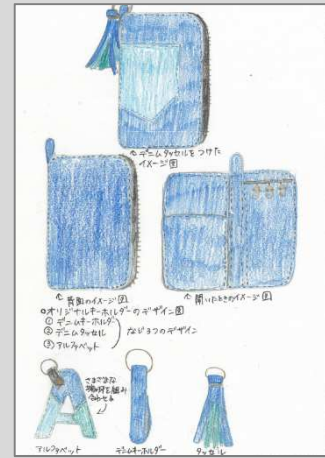 ↑ デニムタッセルをつけた
イメージ図
↑ 背面のイメージ図
↑ 開いたときのイメージ図
○オリジナルキーホルダーのデザイン図
① デニムキーホルダー
② デニムタッセル
③ アルファベット
など3つのデザイン
さまざまな
組み
合わせる
A
アルファベット
デニムキーホルダー
タッセル